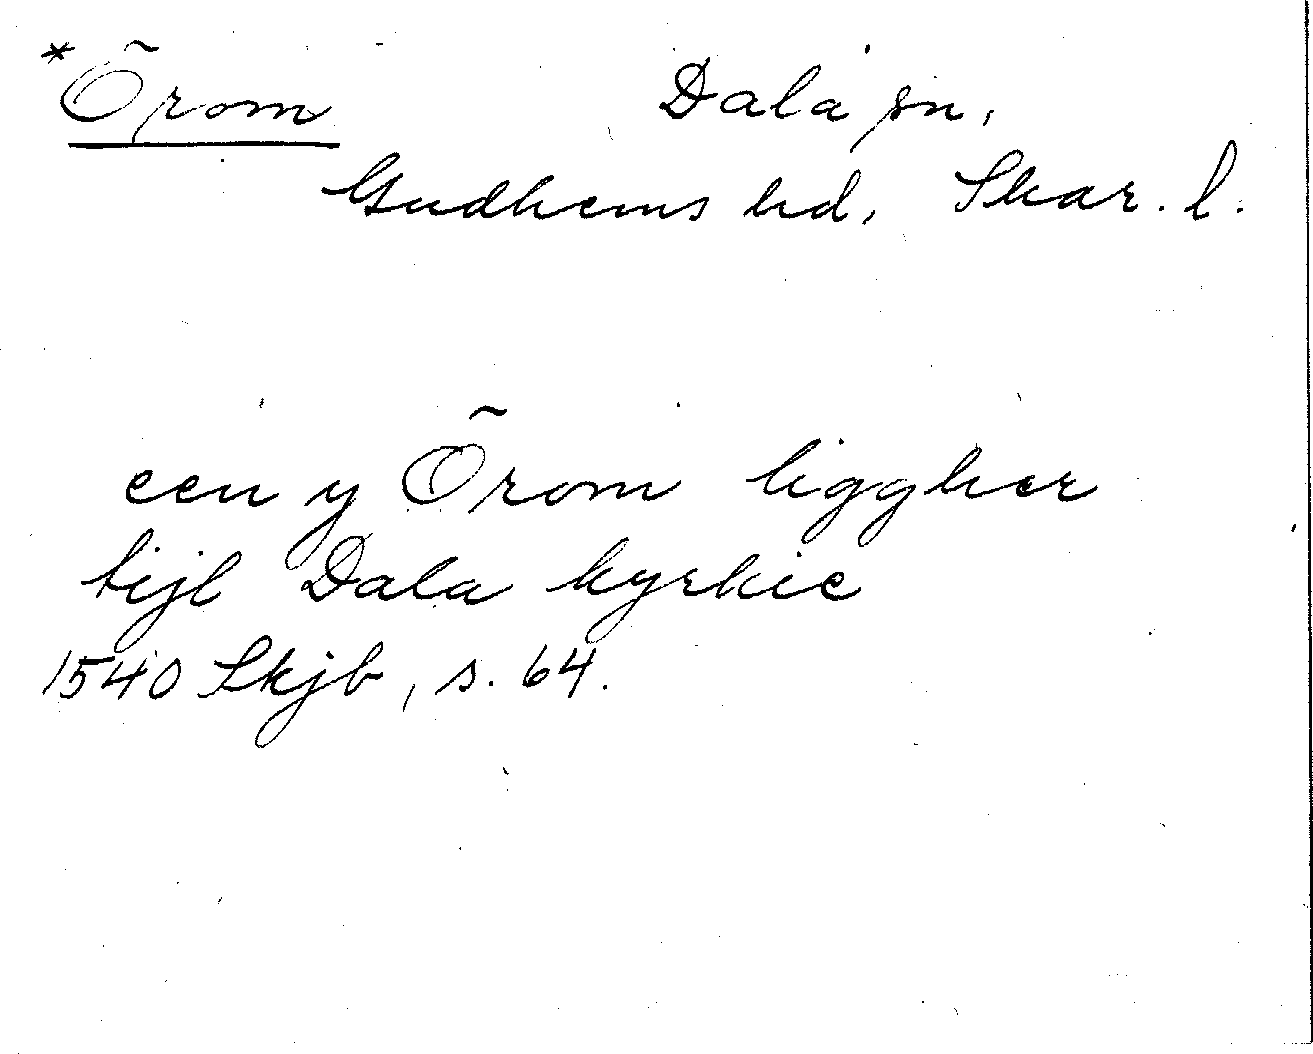 *Õrom Dala sn,
Gudhems hd, Skar. l.
een y Õrom liggher
tijl Dala kyrkie
1540 Skjb, s. 64.